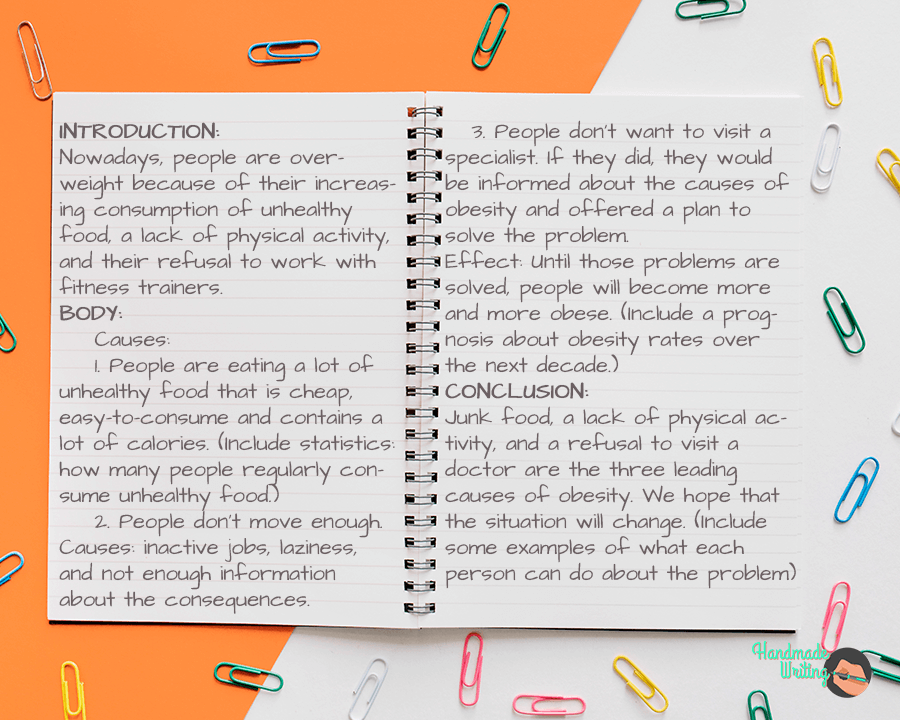 INTRODUCTION:
Nowadays, people are over-
weight because of their increas-
ing consumption of unhealthy
food, a lack of physical activity,
and their refusal to work with
fitness trainers.
BODY:
Causes:
1. People are eating a lot of
unhealthy food that is cheap,
easy-to-consume and contains a
lot of calories. (Include statistics:
how many people regularly con-
sume unhealthy food.)
2. People don't move enough.
Causes: inactive jobs, laziness,
and not enough information
about the consequences.
3. People don't want to visit a
specialist. If they did, they would
be informed about the causes of
obesity and offered a plan to
solve the problem.
Effect: Until those problems are
solved, people will become more
and more obese. (Include a prog-
nosis about obesity rates over
the next decade.)
CONCLUSION:
Junk food, a lack of physical ac-
tivity, and a refusal to visit a
doctor are the three leading
causes of obesity. We hope that
the situation will change. (Include
some examples of what each
person can do about the problem)
Handmade
Writing